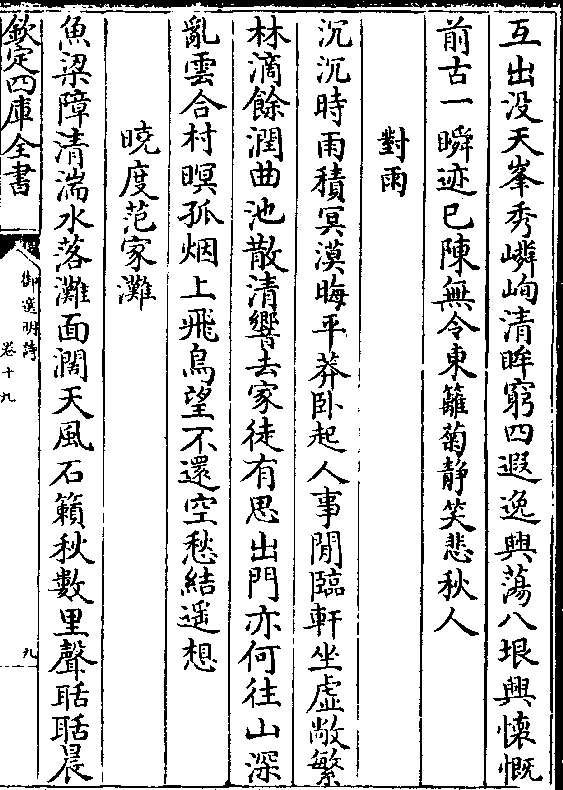 互出没天峯秀嶙峋清眸窮四遐逸興蕩八垠興懷慨
前古一瞬迹已陳無令東籬菊静笑悲秋人
對雨
沉沉時雨積冥漠晦平莽卧起人事閒臨軒坐虛敞繁
林滴餘潤曲池散清響去家徒有思出門亦何往山深
亂雲合村暝孤烟上飛鳥望不還空愁結遥想
曉度范家灘
魚梁障清湍水落灘面濶天風石籟秋數里聲聒聒晨
欽定四庫全書
御選明詩
卷十九
九